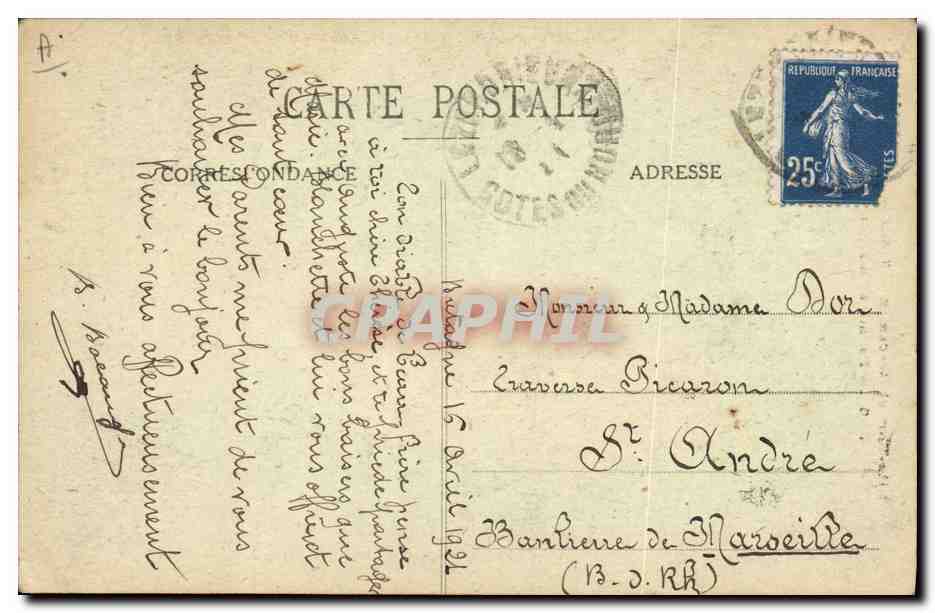 A
CARTE POSTALE
CORRESPONDANCE
ADRESSE
REPUBLIQUE FRANÇAISE
25c
POSTES
COTES DU NORD
CRAPHIL
Bretagne 16 Avril 1921
Ton diable de Beau Frère pense
à toi chère Thérèse, et te prie de partager
avec Auguste les bons baisers que
Marie. Blanchette et lui vous offrent
de tout cœur
Mes Parents me prient de vous
souhaiter le bonjour
Bien à vous affectueusement
Monsieur & Madame Dor
Traverse Picaron
St. André
Banlieue de Marseille
(B-d. Rh)